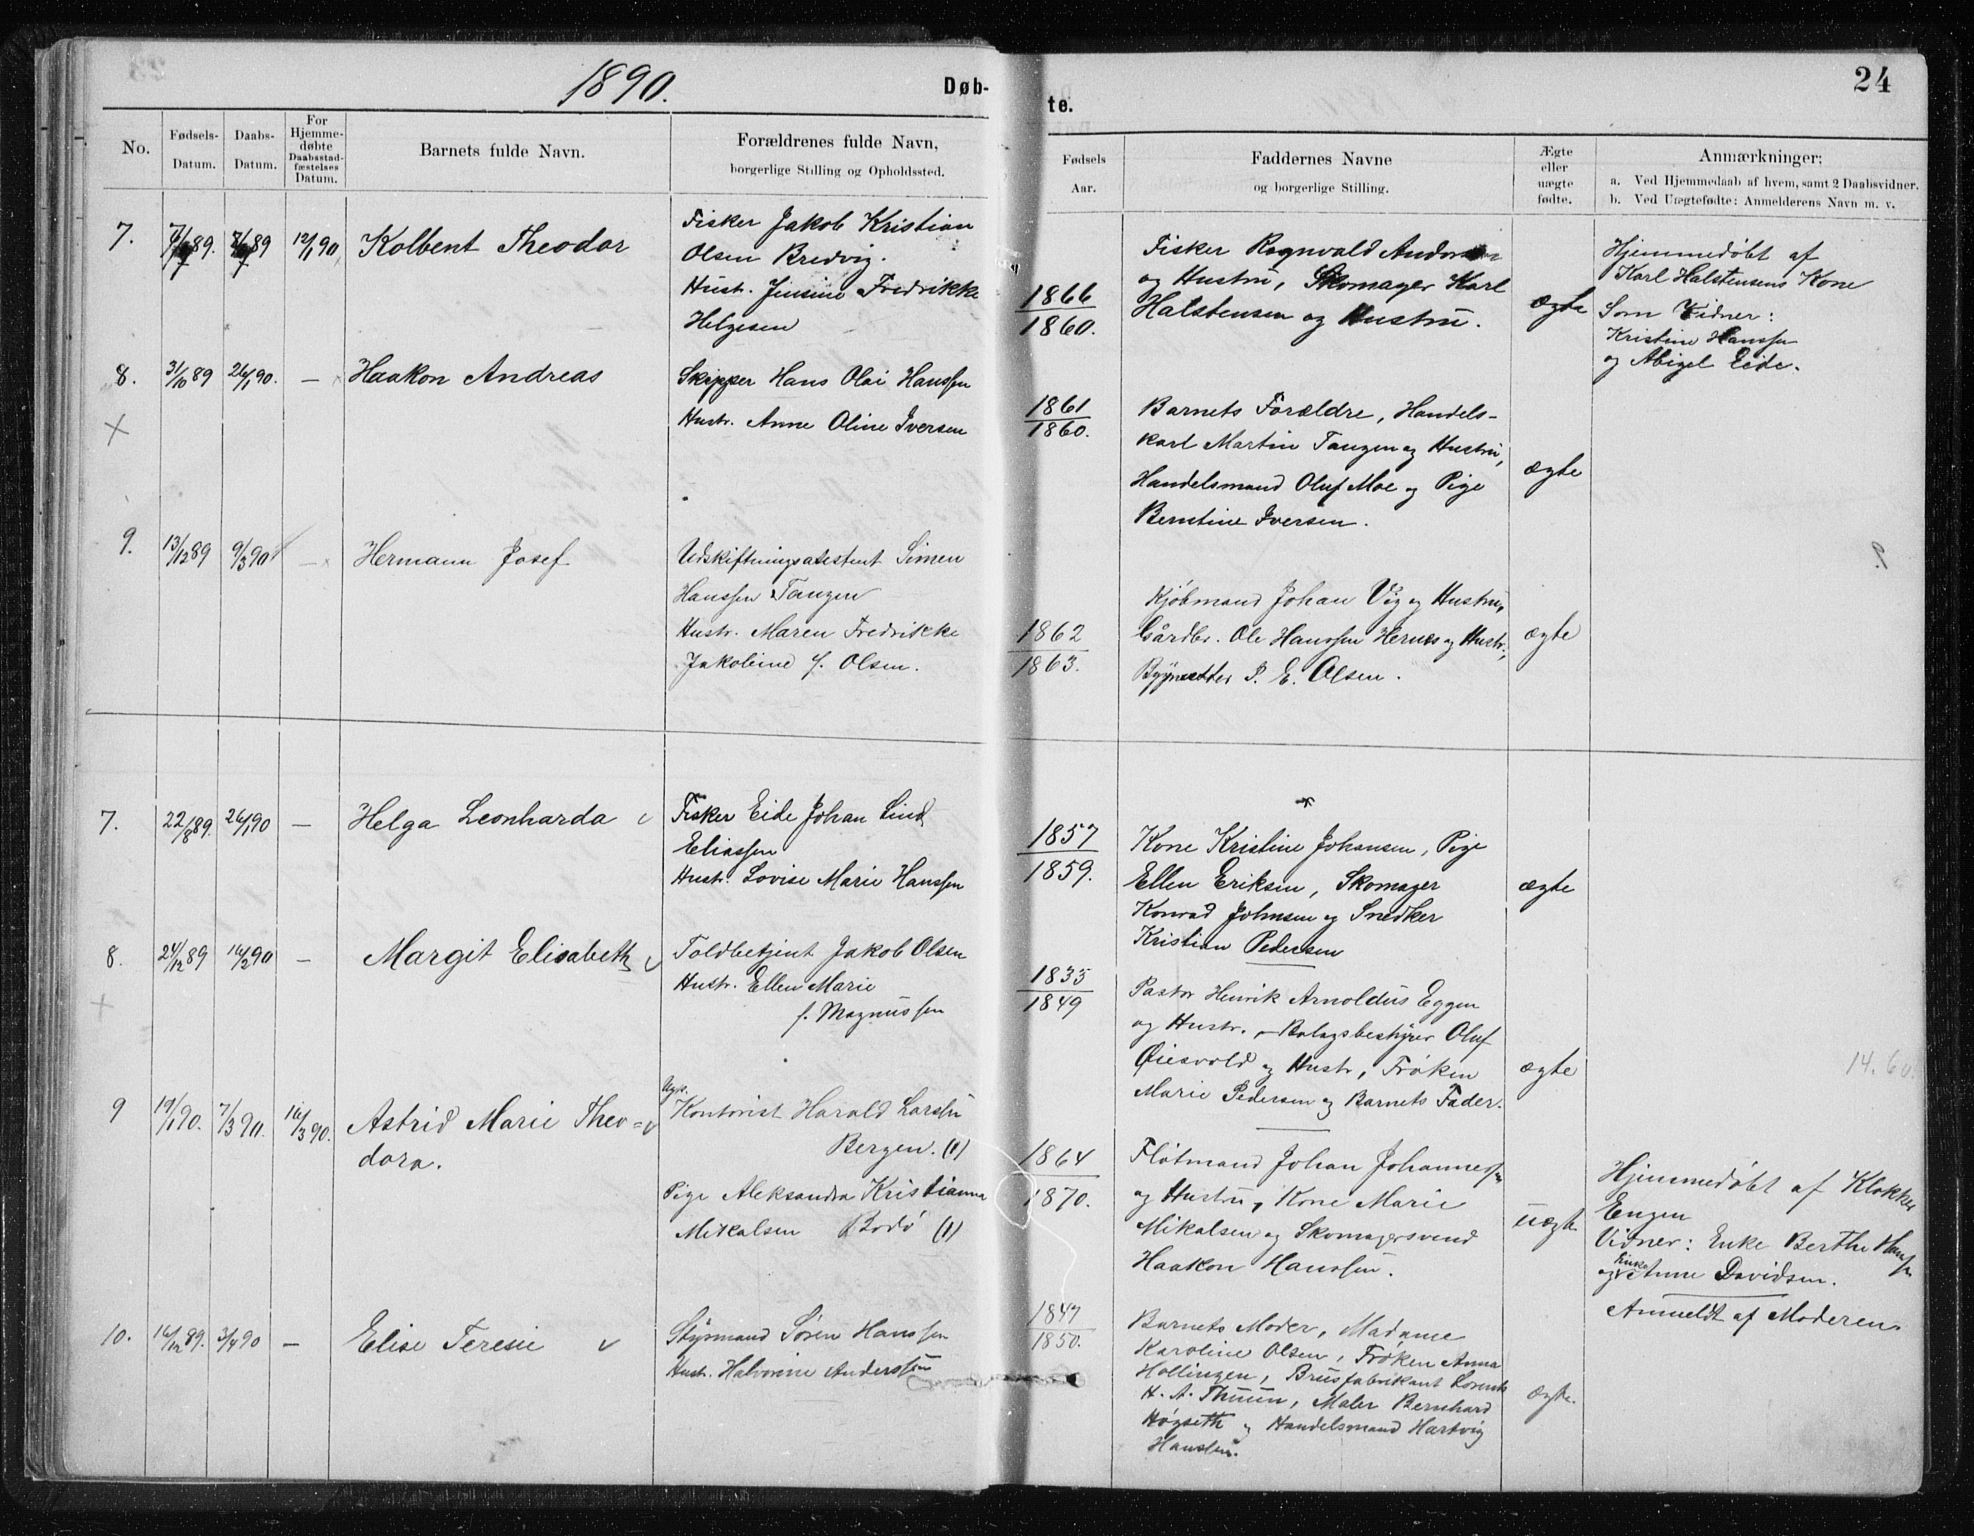 1890.
Døb-
te.
24
No.
Fødsels-
Datum.
Daabs-
Datum.
For
Hjemme-
døbte
Daabsstad-
fæstelses
Datum.
Barnets fulde Navn.
Forældrenes fulde Navn,
borgerlige Stilling og Opholdssted.
Fødsels
Aar.
Faddernes Navne
og borgerlige Stilling.
Ægte
eller
uægte
fødte.
Anmærkninger;
a. Ved Hjemmedaab af hvem, samt 2 Daabsvidner.
b. Ved Uægtefødte: Anmelderens Navn m. v.
7.
12/1 90
Kolbent Theodor
Fisker Jakob Kristian
Olsen Bredvig.
Hustr. Jensine Fredrikke
Helgesen
1866
1860.
Fisker Ragnvald
og Hustru, Skomager Karl
Halstensen og Hustru.
ægte
Hjemmedøbt af
Karl Halstensens Kone
Som Vidner:
Kristine Hanssen
og Abigel Eide.
8.
31/10 89
26/1 90.
—
Haakon Andreas
Skipper Hans Olai Hanssen
Hustr. Anne Oline Iversen
1861
1860.
Barnets Forældre, Handels-
karl Martin Tangen og Hustru,
Handelsmand Oluf Moe og Pige
Berntine Iversen.
ægte
9.
13/12 89
9/3 90
—
Hermann Josef
Udskiftningsassistent Simen
Hanssen Tangen
Hustr. Maren Fredrikke
Jakobine f. Olsen.
1862
1863.
Kjøbmand Johan Vig og Hustru,
Gårdbr. Ole Hanssen Hernes og Hustr.,
P. E. Olsen.
ægte
7.
22/8 89.
26/1 90
—
Helga Leonharda
Fisker Eide Johan Lind
Eliassen
Hustr. Lovise Marie Hanssen
1857
1859.
Kone Kristine Johansen, Pige
Ellen Eriksen, Skomager
Konrad Johnsen og Snedker
Kristian Pedersen
ægte
8.
24/12 89
16/2 90
—
Margit Elisabeth
Toldbetjent Jakob Olsen
Hustr. Ellen Marie
f. Magnussen
1835
1849
Pastor Henrik Arnoldus Eggen
og Hustr. Bolagsbestyrer Oluf
Øiesvold og Hustr, Frøken
Marie Pedersen og Barnets Fader.
ægte
14.60
9
19/1 90.
7/3 90.
16/3 90.
Astrid Marie Theo-
dora.
Ugs.
Kontorist Harald Larssen
Bergen. (1)
Pige Aleksandra Kristianna
Mikalsen Bodø (1)
1864
1870.
Fløtmand Johan Johannessen
og Hustru, Kone Marie
Mikalsen og Skomagersvend
Haakon Hanssen.
uægte
Hjemmedøbt af Klokker
Engen
Vidner: Enke Berthe Hanssen
og Enke Anne Davidsen.
Anmeldt af Moderen.
10.
16/12 89.
3/4 90
—
Elise Teresie
Styrmand Søren Hanssen
Hustr. Halvorine Anderssen
1847
1850.
Barnets Moder, Madame
Karoline Olsen, Frøken Anna
Hollingen, Brusfabrikant Lorents
H. A. Thuun, Maler Bernhard
Høgseth og Handelsmand Hartvig
Hanssen.
ægte.